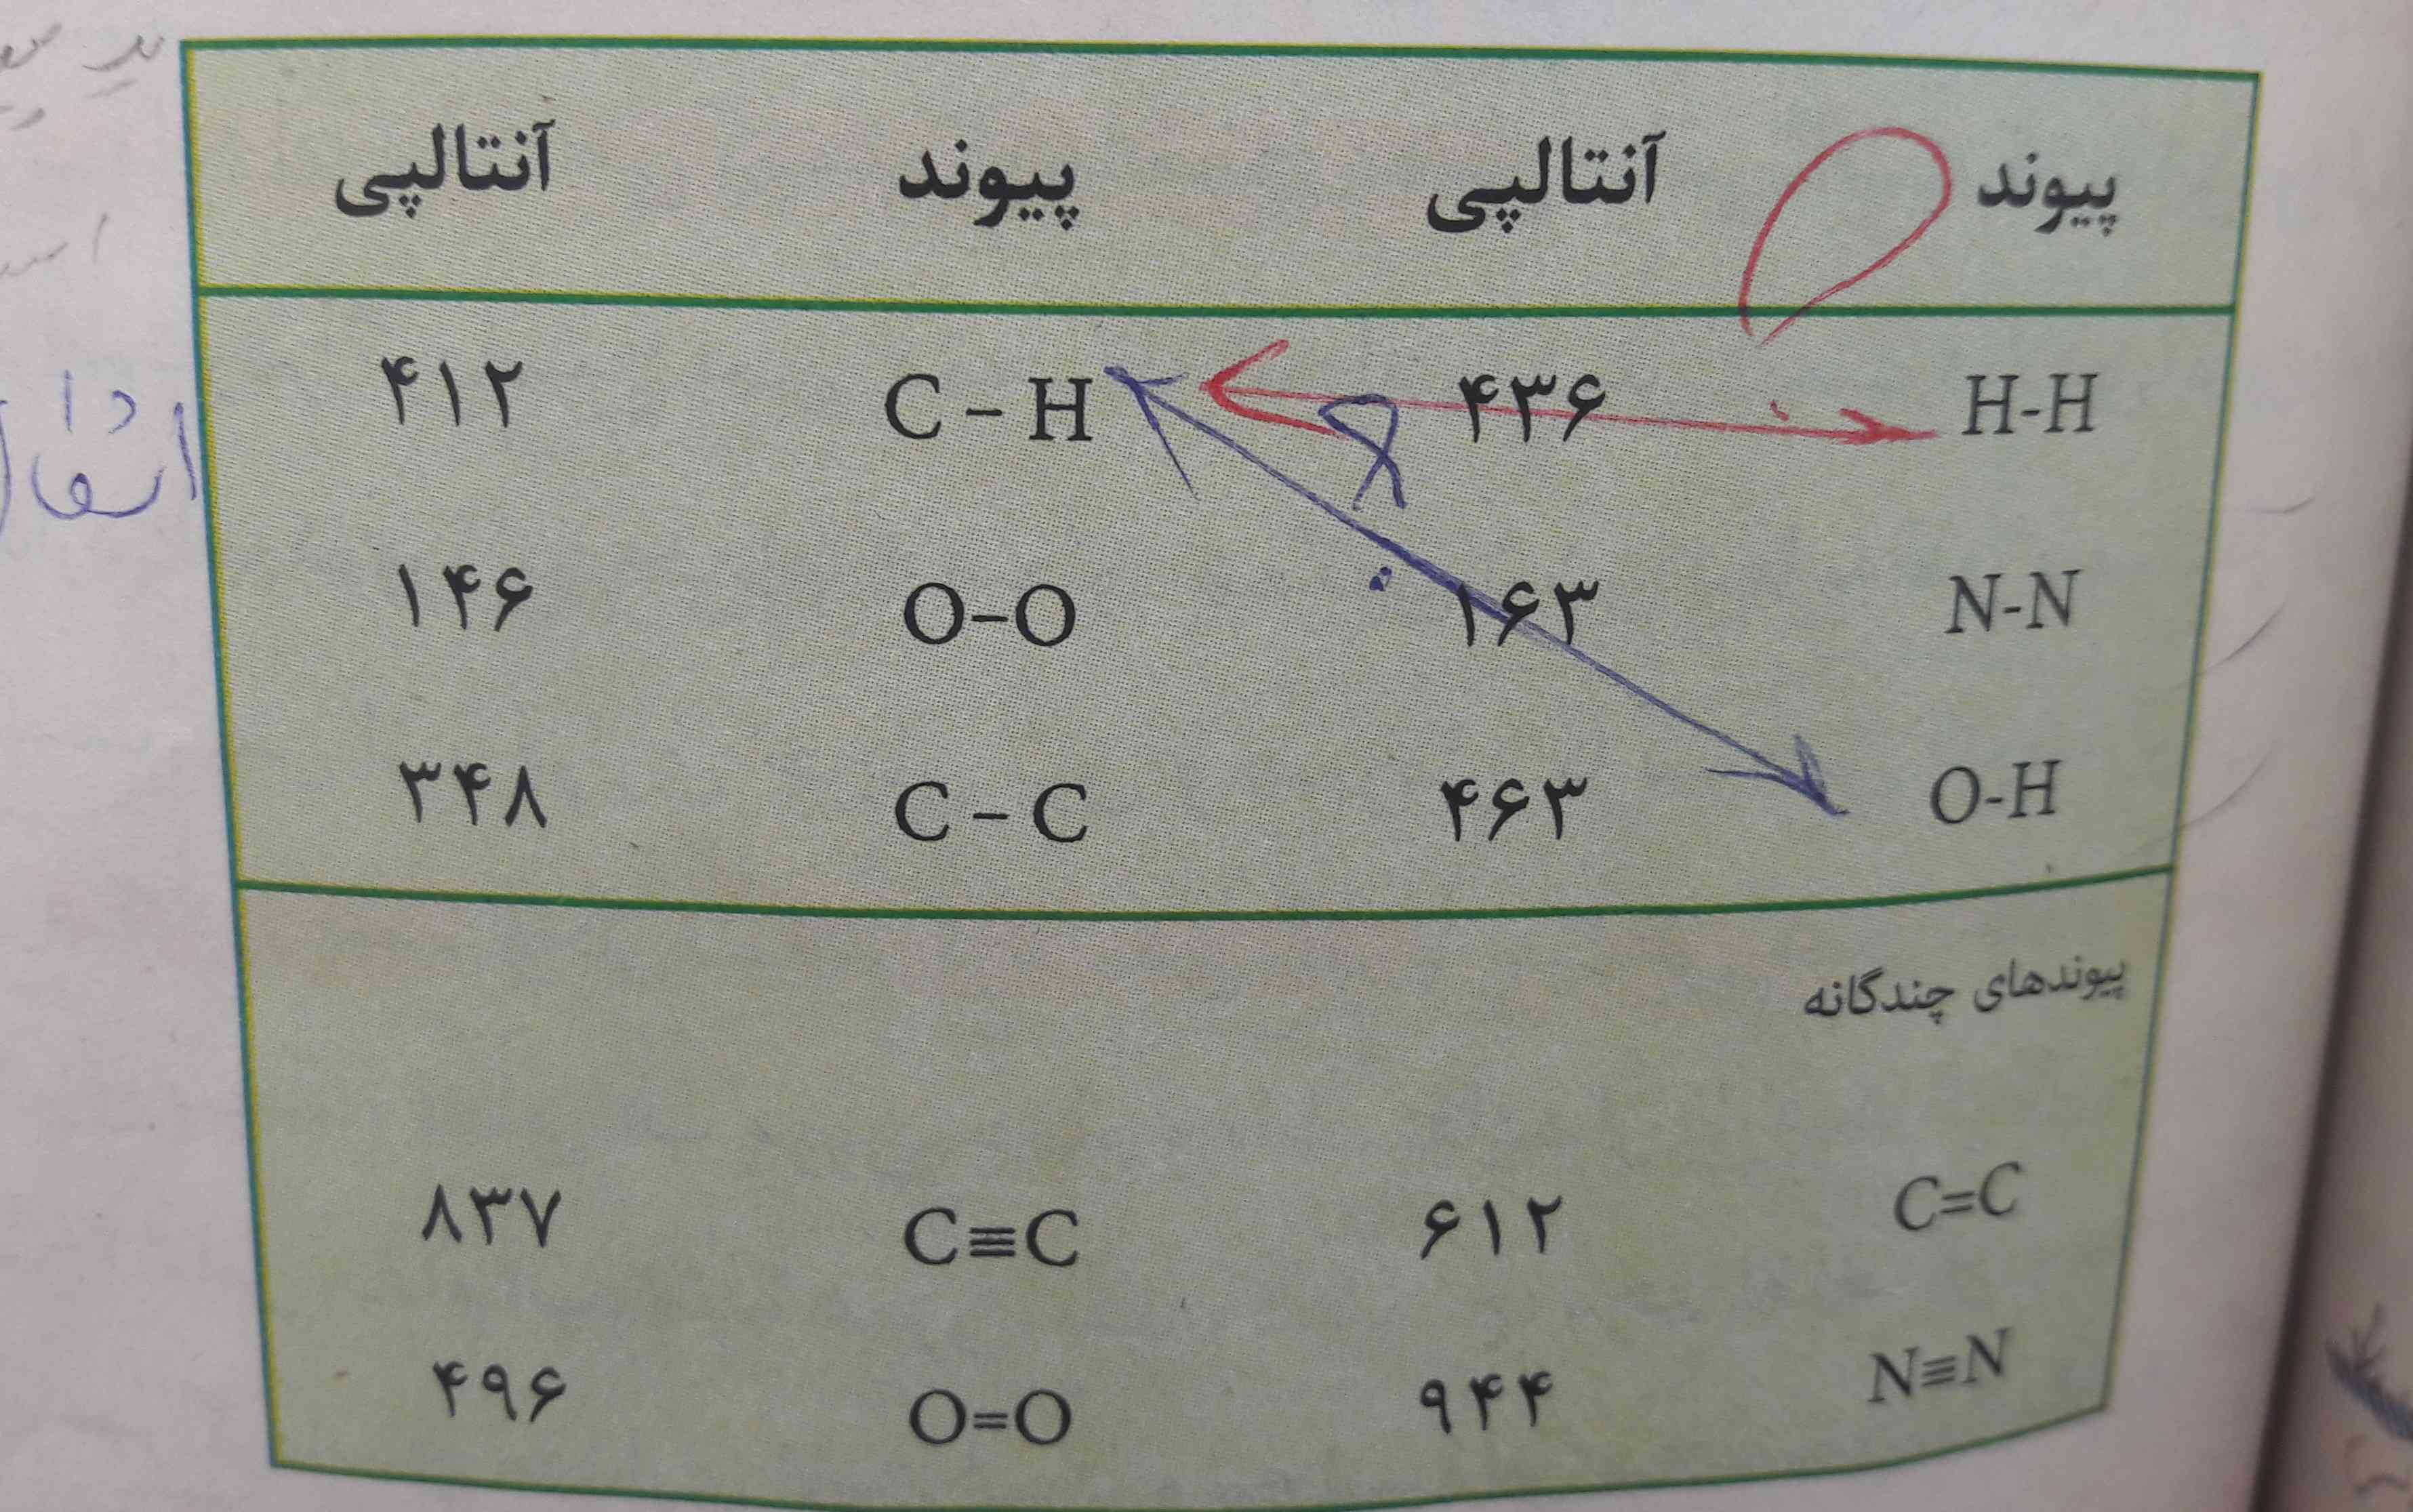 پیوند آنتالپی پیوند آنتالپی
H-H ۴۳۶ C – H ۴۱۲
N-N ۱۶۳ O–O ۱۴۶
O-H ۴۶۳ C – C ۳۴۸
پیوندهای چندگانه
C=C ۶۱۲ C≡C ۸۳۷
N≡N ۹۴۴ O=O ۴۹۶